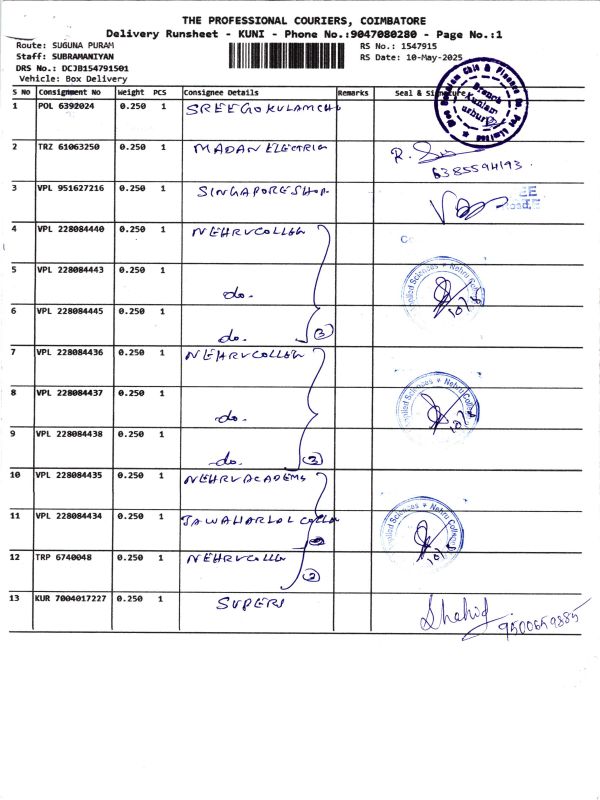 THE PROFESSIONAL COURIERS, COIMBATORE
Delivery Runsheet - KUNI - Phone No.:9047080280 - Page No.:1
Route: SUGUNA PURAM RS No.: 1547915
Staff: SUBRAMANIYAN RS Date: 10-May-2025
DRS No.: DCJB154791501
Vehicle: Box Delivery
S No Consignment No Weight PCS Consignee Details Remarks Seal & Signature
1 POL 6392024 0.250 1 SREEGOKULAMCH
Branch
Kuniam
2 TRZ 61063250 0.250 1 MADAN ELECTRIC
6385594193.
3 VPL 951627216 0.250 1 SINGAPORESHOP
4 VPL 228084440 0.250 1 NEHRUCOLLEG
5 VPL 228084443 0.250 1 do.
6 VPL 228084445 0.250 1 do. 3
7 VPL 228084436 0.250 1 NEHRUCOLLEG
8 VPL 228084437 0.250 1 do.
9 VPL 228084438 0.250 1 do. 3
10 VPL 228084435 0.250 1 NEHRUACADEMS
11 VPL 228084434 0.250 1 JAWAHARLAL
12 TRP 6740048 0.250 1 NEHRUCOLLEG
13 KUR 7004017227 0.250 1 SUPERS
Shahid 9500659885